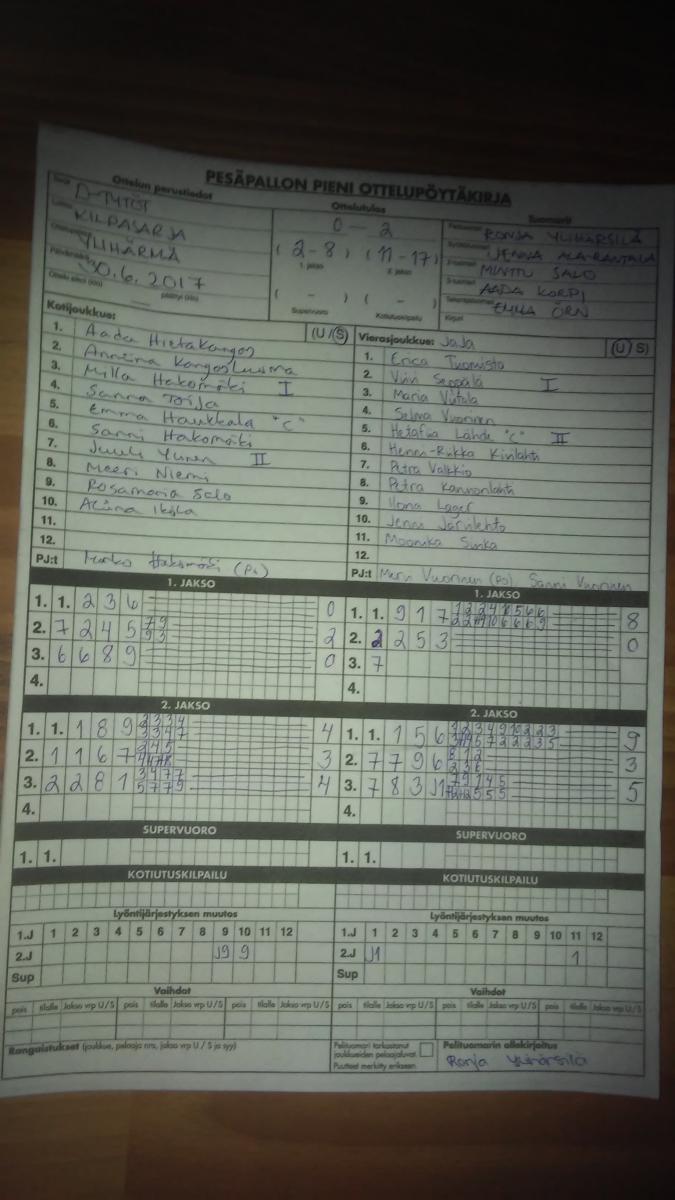 PESÄPALLON PIENI OTTELUPÖYTÄKIRJA
Ottelun perustiedot
Ottelutulos
Tuomarit
D-TYTÖT
KILPASARJA
YLIHÄRMÄ
30.6.2017
0 - 2
(2-8) (11-17)
1. jakso 2. jakso
( - ) ( - )
Supervuoro Kotiutuskilpailu
RONJA YLIHÄRSILÄ
JENNA ALA-RANTALA
MINTTU SALO
AADA KORPI
EMMA ÖRN
Kotijoukkue: (U/S)
1. Aada Hietakangas
2. Anniina Kangasluoma
3. Milla Hakomäki I
4. Sanna Torja
5. Emma Haukkala "C"
6. Sanni Hakomäki
7. Juuli Yunen II
8. Meeri Niemi
9. Rosamaria Salo
10. Aliina Ikola
11.
12.
PJ:t Marko Hakomäki (PJ)
Vierasjoukkue: JaJa (U/S)
1. Erica Tuomisto
2. Viivi Seppälä I
3. Maria Viitala
4. Selma Vuorinen
5. Hetafiia Lähde "C" II
6. Henna-Riikka Kivilahti
7. Petra Valkkio
8. Petra Kannonlahti
9. Ilona Lager
10. Jenni Järvilehto
11. Moonika Sunka
12.
PJ:t Mervi Vuorinen (PJ) Sanni Vuorinen
1. JAKSO
1. 1. 2 3 6 0
2. 7 2 4 5 79 93 2
3. 6 6 8 9 0
4.
1. JAKSO
1. 1. 9 1 7 8
2. 2 2 5 3 0
3. 7
4.
2. JAKSO
1. 1. 1 8 9 2334 3347 4
2. 1 1 6 7 3
3. 2 2 8 1 3477 5779 4
4.
2. JAKSO
1. 1. 1 5 6 9
2. 7 7 9 6 3
3. 7 8 3 J1 5
4.
SUPERVUORO
1. 1.
SUPERVUORO
1. 1.
KOTIUTUSKILPAILU
KOTIUTUSKILPAILU
Lyöntijärjestyksen muutos
1.J 1 2 3 4 5 6 7 8 9 10 11 12
2.J J9 9
Sup
Lyöntijärjestyksen muutos
1.J 1 2 3 4 5 6 7 8 9 10 11 12
2.J J1 1
Sup
Vaihdot
pois tilalle Jakso vrp U/S pois tilalle Jakso vrp U/S pois tilalle Jakso vrp U/S
Vaihdot
pois tilalle Jakso vrp U/S pois tilalle Jakso vrp U/S pois tilalle Jakso vrp U/S
Rangaistukset (joukkue, pelaaja nro, jakso vrp U / S ja syy)
Pelituomari tarkastanut
joukkueiden pelaajaluvat.
Puutteet merkitty erikseen.
Pelituomarin allekirjoitus
Ronja Ylihärsilä